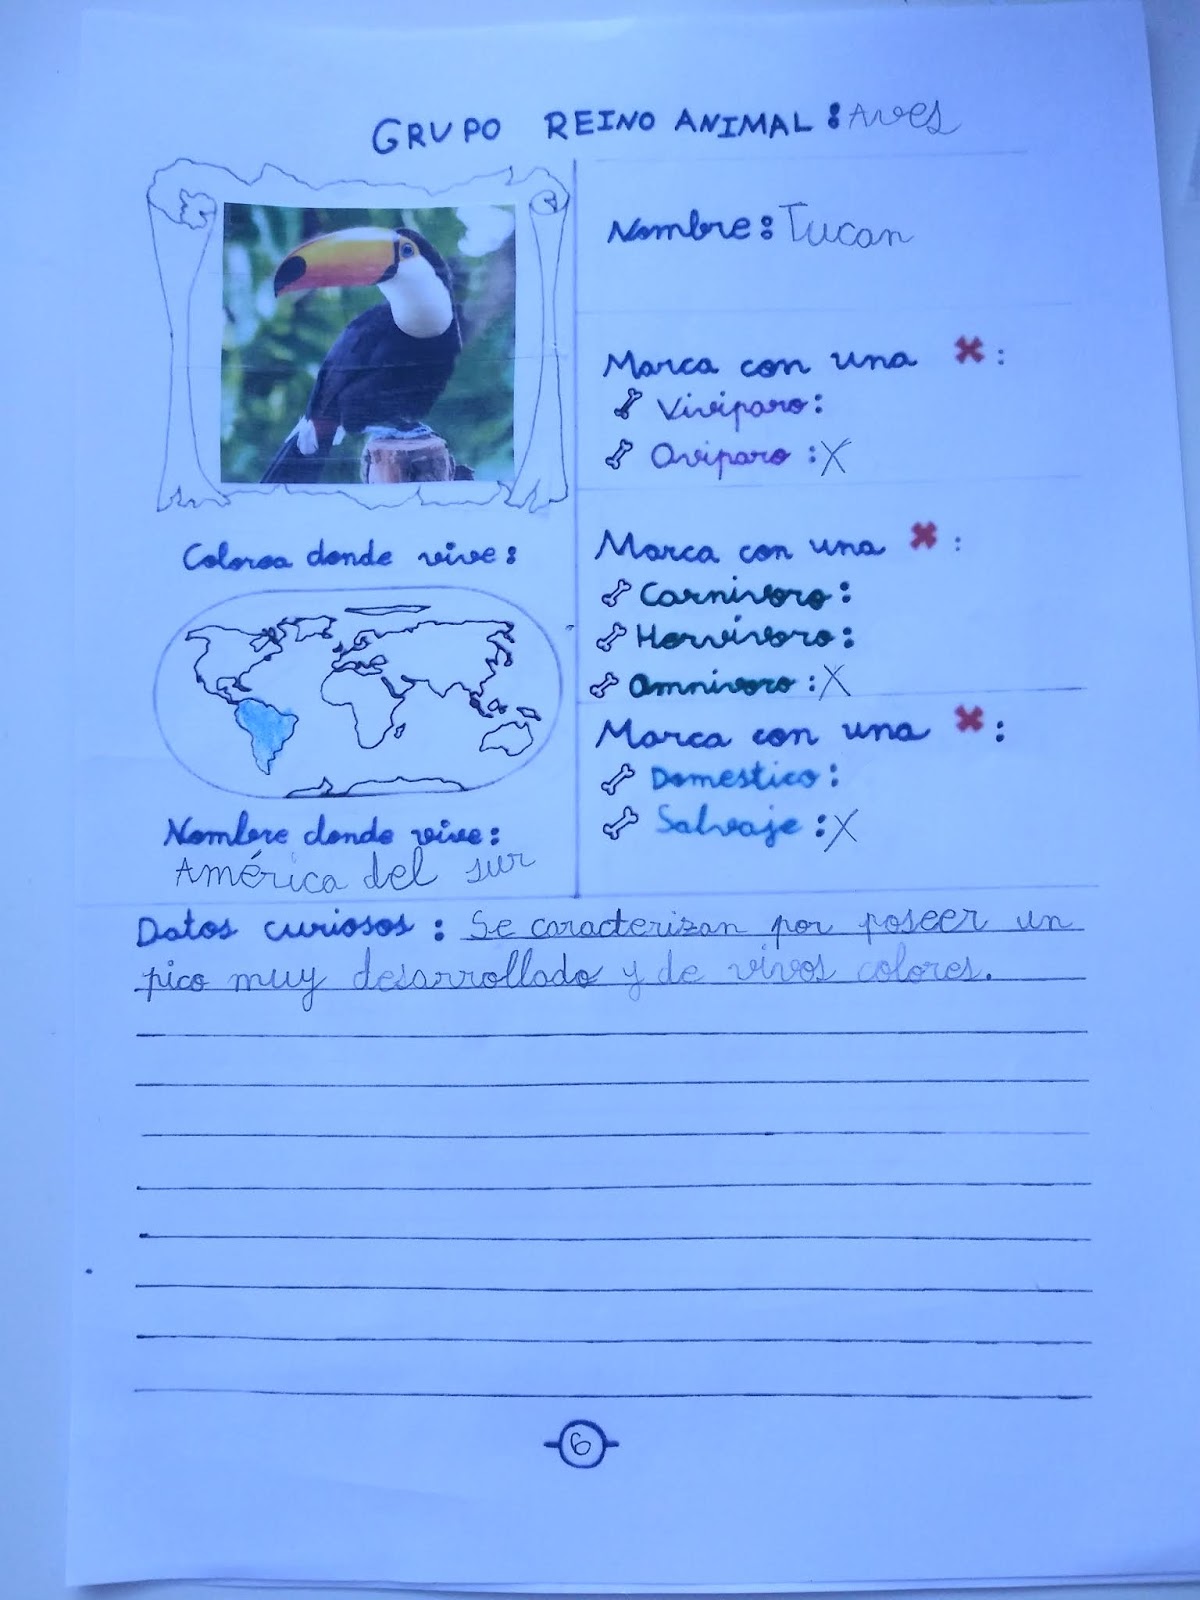 GRUPO REINO ANIMAL: Aves
Nombre: Tucan
Marca con una ✖:
Viviparo:
Oviparo: X
Colorea donde vive:
Marca con una ✖:
Carnívoro:
Hervívoro:
Omnívoro: X
Marca con una ✖:
Domestico:
Salvaje: X
Nombre donde vive:
América del sur
Datos curiosos: Se caracterizan por poseer un
pico muy desarrollado y de vivos colores.
6